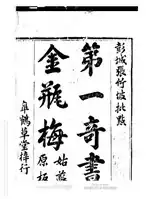 彭城張竹坡批點
第一奇書
金瓶梅
姑蘇原板
皐鶴草堂梓行